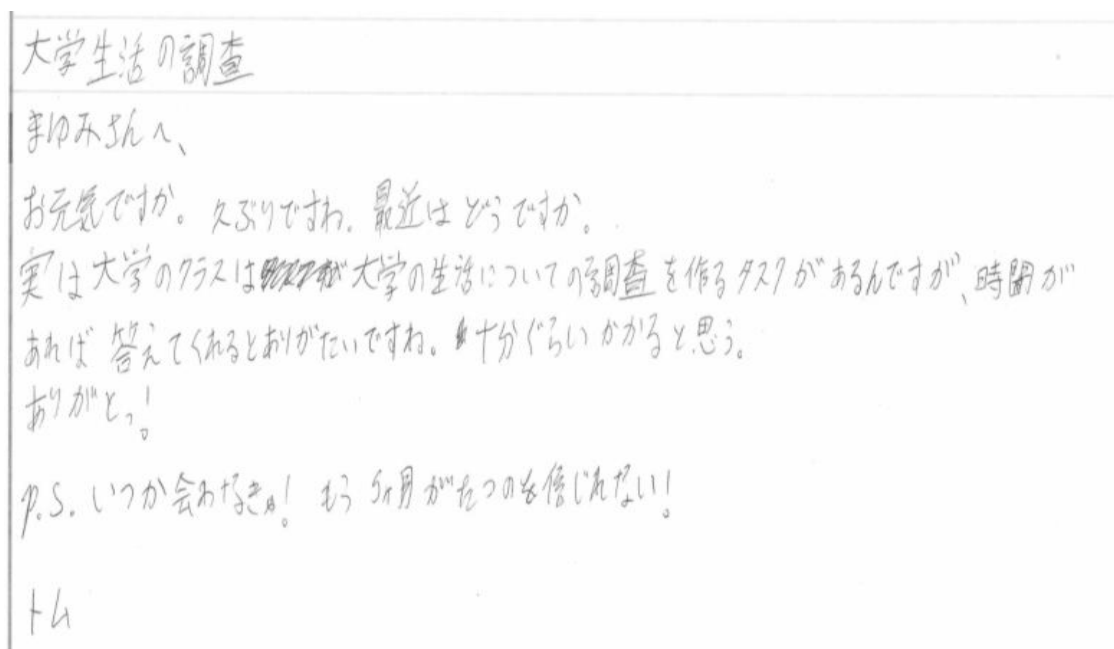 大学生活の調査
まゆみさんへ、
お元気ですか。久ぶりですね。最近はどうですか。
実は大学のクラスは大学の生活についての調査を作るタスクがあるんですが、時間が
あれば答えてくれるとありがたいですね。十分ぐらいかかると思う。
ありがとっ!
P.S. いつか会わなきゃ! もう5ヶ月がたつのを信じれない!
トム